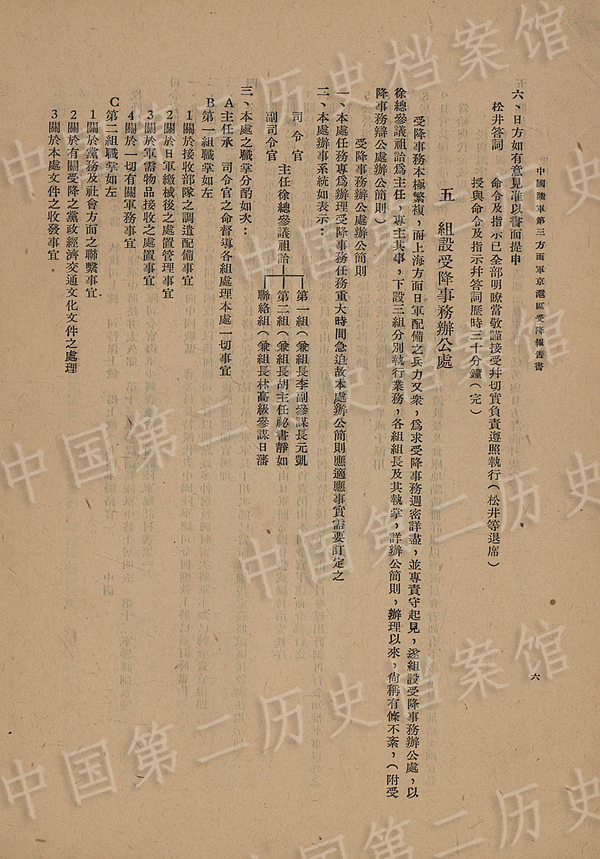 中國陸軍第三方面軍京滬區受降報告書
六
六、日方如有意見准以書面提申
松井答詞　命令及指示已全部明瞭當敬謹接受幷切實負責遵照執行(松井等退席)
授與命令及指示幷答詞歷時三十分鐘(完)
五　組設受降事務辦公處
受降事務本極繁複，而上海方面日軍配備之兵力又衆，爲求受降事務週密詳盡，並專責守起見，遂組設受降事務辦公處，以
徐總參議祖詒爲主任，專主其事，下設三組分別執行業務，各組組長及其執掌，詳辦公簡則，辦理以來，尙稱有條不紊，(附受
降事務辦公處辦公簡則)
受降事務辦公處辦公簡則
一、本處任務專爲辦理受降事務任務重大時間急迫故本處辦公簡則應適應事實需要訂定之
二、本處辦事系統如表示：
司令官
副司令官
主任徐總參議祖詒
第一組(兼組長李副參謀長元凱
第二組(兼組長胡主任祕書靜如
聯絡組(兼組長林高級參謀日藩
三、本處之職掌分酌如次：
A主任承　司令官之命督導各組處理本處一切事宜
B第一組職掌如左
1關於接收部隊之調遣配備事宜
2關於日軍繳械後之處置管理事宜
3關於軍需物品接收之處置事宜
4關於一切有關軍務事宜
C第二組職掌如左
1關於黨務及社會方面之聯繫事宜
2關於有關受降之黨政經濟交通文化文件之處理
3關於本處文件之收發事宜
中国第二历史档案馆
中国第二历史档案馆
中国第二历史档案馆
中国第二历史档案馆